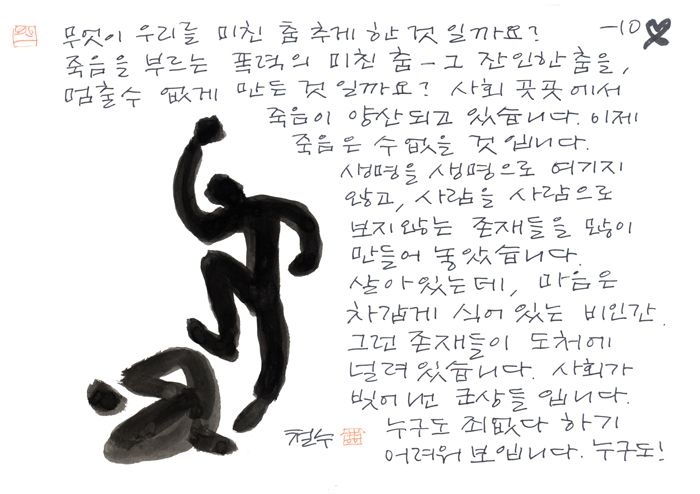 무엇이 우리를 미친 춤 추게 한 것 일까요? -10
죽음을 부르는 폭력의 미친 춤-그 잔인한 춤을,
멈출수 없게 만든 것 일까요? 사회 곳곳에서
죽음이 양산되고 있습니다. 이제
죽음은 수없을 것입니다.
생명을 생명으로 여기지
않고, 사람을 사람으로
보지않는 존재들을 많이
만들어 놓았습니다.
살아있는데, 마음은
차갑게 식어있는 비인간.
그런 존재들이 도처에
널려있습니다. 사회가
빚어낸 표상들 입니다.
누구도 죄없다 하기
어려워 보입니다. 누구도!
철수